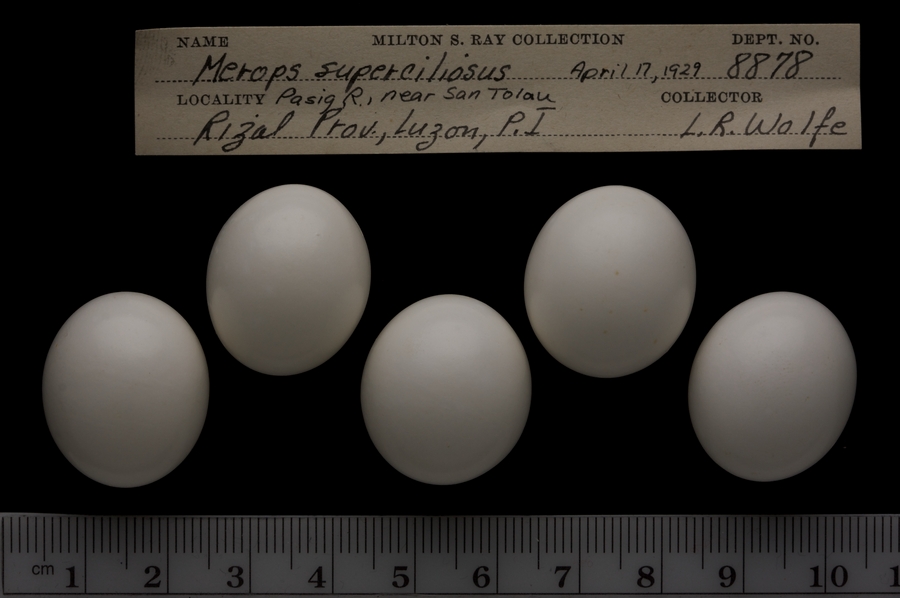 NAME MILTON S. RAY COLLECTION DEPT. NO.
Merops superciliosus April 17, 1929 8878
LOCALITY Pasig R., near San Tolau COLLECTOR
Rizal Prov., Luzon, P.I L.R. Wolfe
cm 1 2 3 4 5 6 7 8 9 10 1